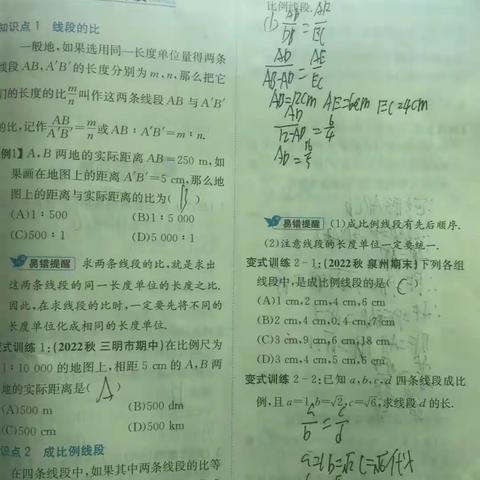 知识点1 线段的比
一般地,如果选用同一长度单位量得两条
线段 AB,A′B′ 的长度分别为 m,n,那么把它
们的长度的比 m/n 叫作这两条线段 AB 与 A′B′
的比,记作 AB/A′B′ = m/n 或 AB∶A′B′=m∶n.
例1】A,B 两地的实际距离 AB=250 m,如
果画在地图上的距离 A′B′=5 cm,那么地
图上的距离与实际距离的比为( B )
(A)1∶500 (B)1∶5 000
(C)500∶1 (D)5 000∶1
易错提醒 求两条线段的比,就是求出
这两条线段的同一长度单位的长度之比.
因此,在求线段的比时,一定要先将不同的
长度单位化成相同的长度单位.
变式训练1:(2022秋 三明市期中)在比例尺为
1∶10 000 的地图上,相距 5 cm 的 A,B 两
地的实际距离是( A )
(A)500 m (B)500 dm
(C)500 cm (D)500 km
知识点2 成比例线段
在四条线段中,如果其中两条线段的比等
比例线段.
AD/DB = AE/EC
AD/AB-AD = AE/EC
AB=12cm AE=6cm EC=4cm
AD/12-AD = 6/4
易错提醒 (1)成比例线段有先后顺序.
(2)注意线段的长度单位一定要统一.
变式训练2-1:(2022秋 泉州期末)下列各组
线段中,是成比例线段的是( C )
(A)1 cm,2 cm,4 cm,6 cm
(B)2 cm,4 cm,0.4 cm,7 cm
(C)3 cm,9 cm,6 cm,18 cm
(D)3 cm,4 cm,5 cm,6 cm
变式训练2-2:已知 a,b,c,d 四条线段成比
例,且 a=1,b=√2,c=√6,求线段 d 的长.
a/b = c/d
a=1 b=√2 c=√6代入